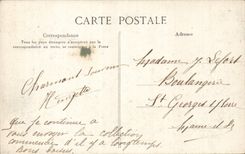 CARTE POSTALE
Correspondance
Tous les pays étrangers n'acceptent pas la
correspondance au verso, se renseigner à la Poste
Charmant souvenir
Henriette
que je continue à
vous envoyer la collection
commencée d'il y a longtemps.
Bons baisers.
Madame
Boulangerie
St Georges s/Loire